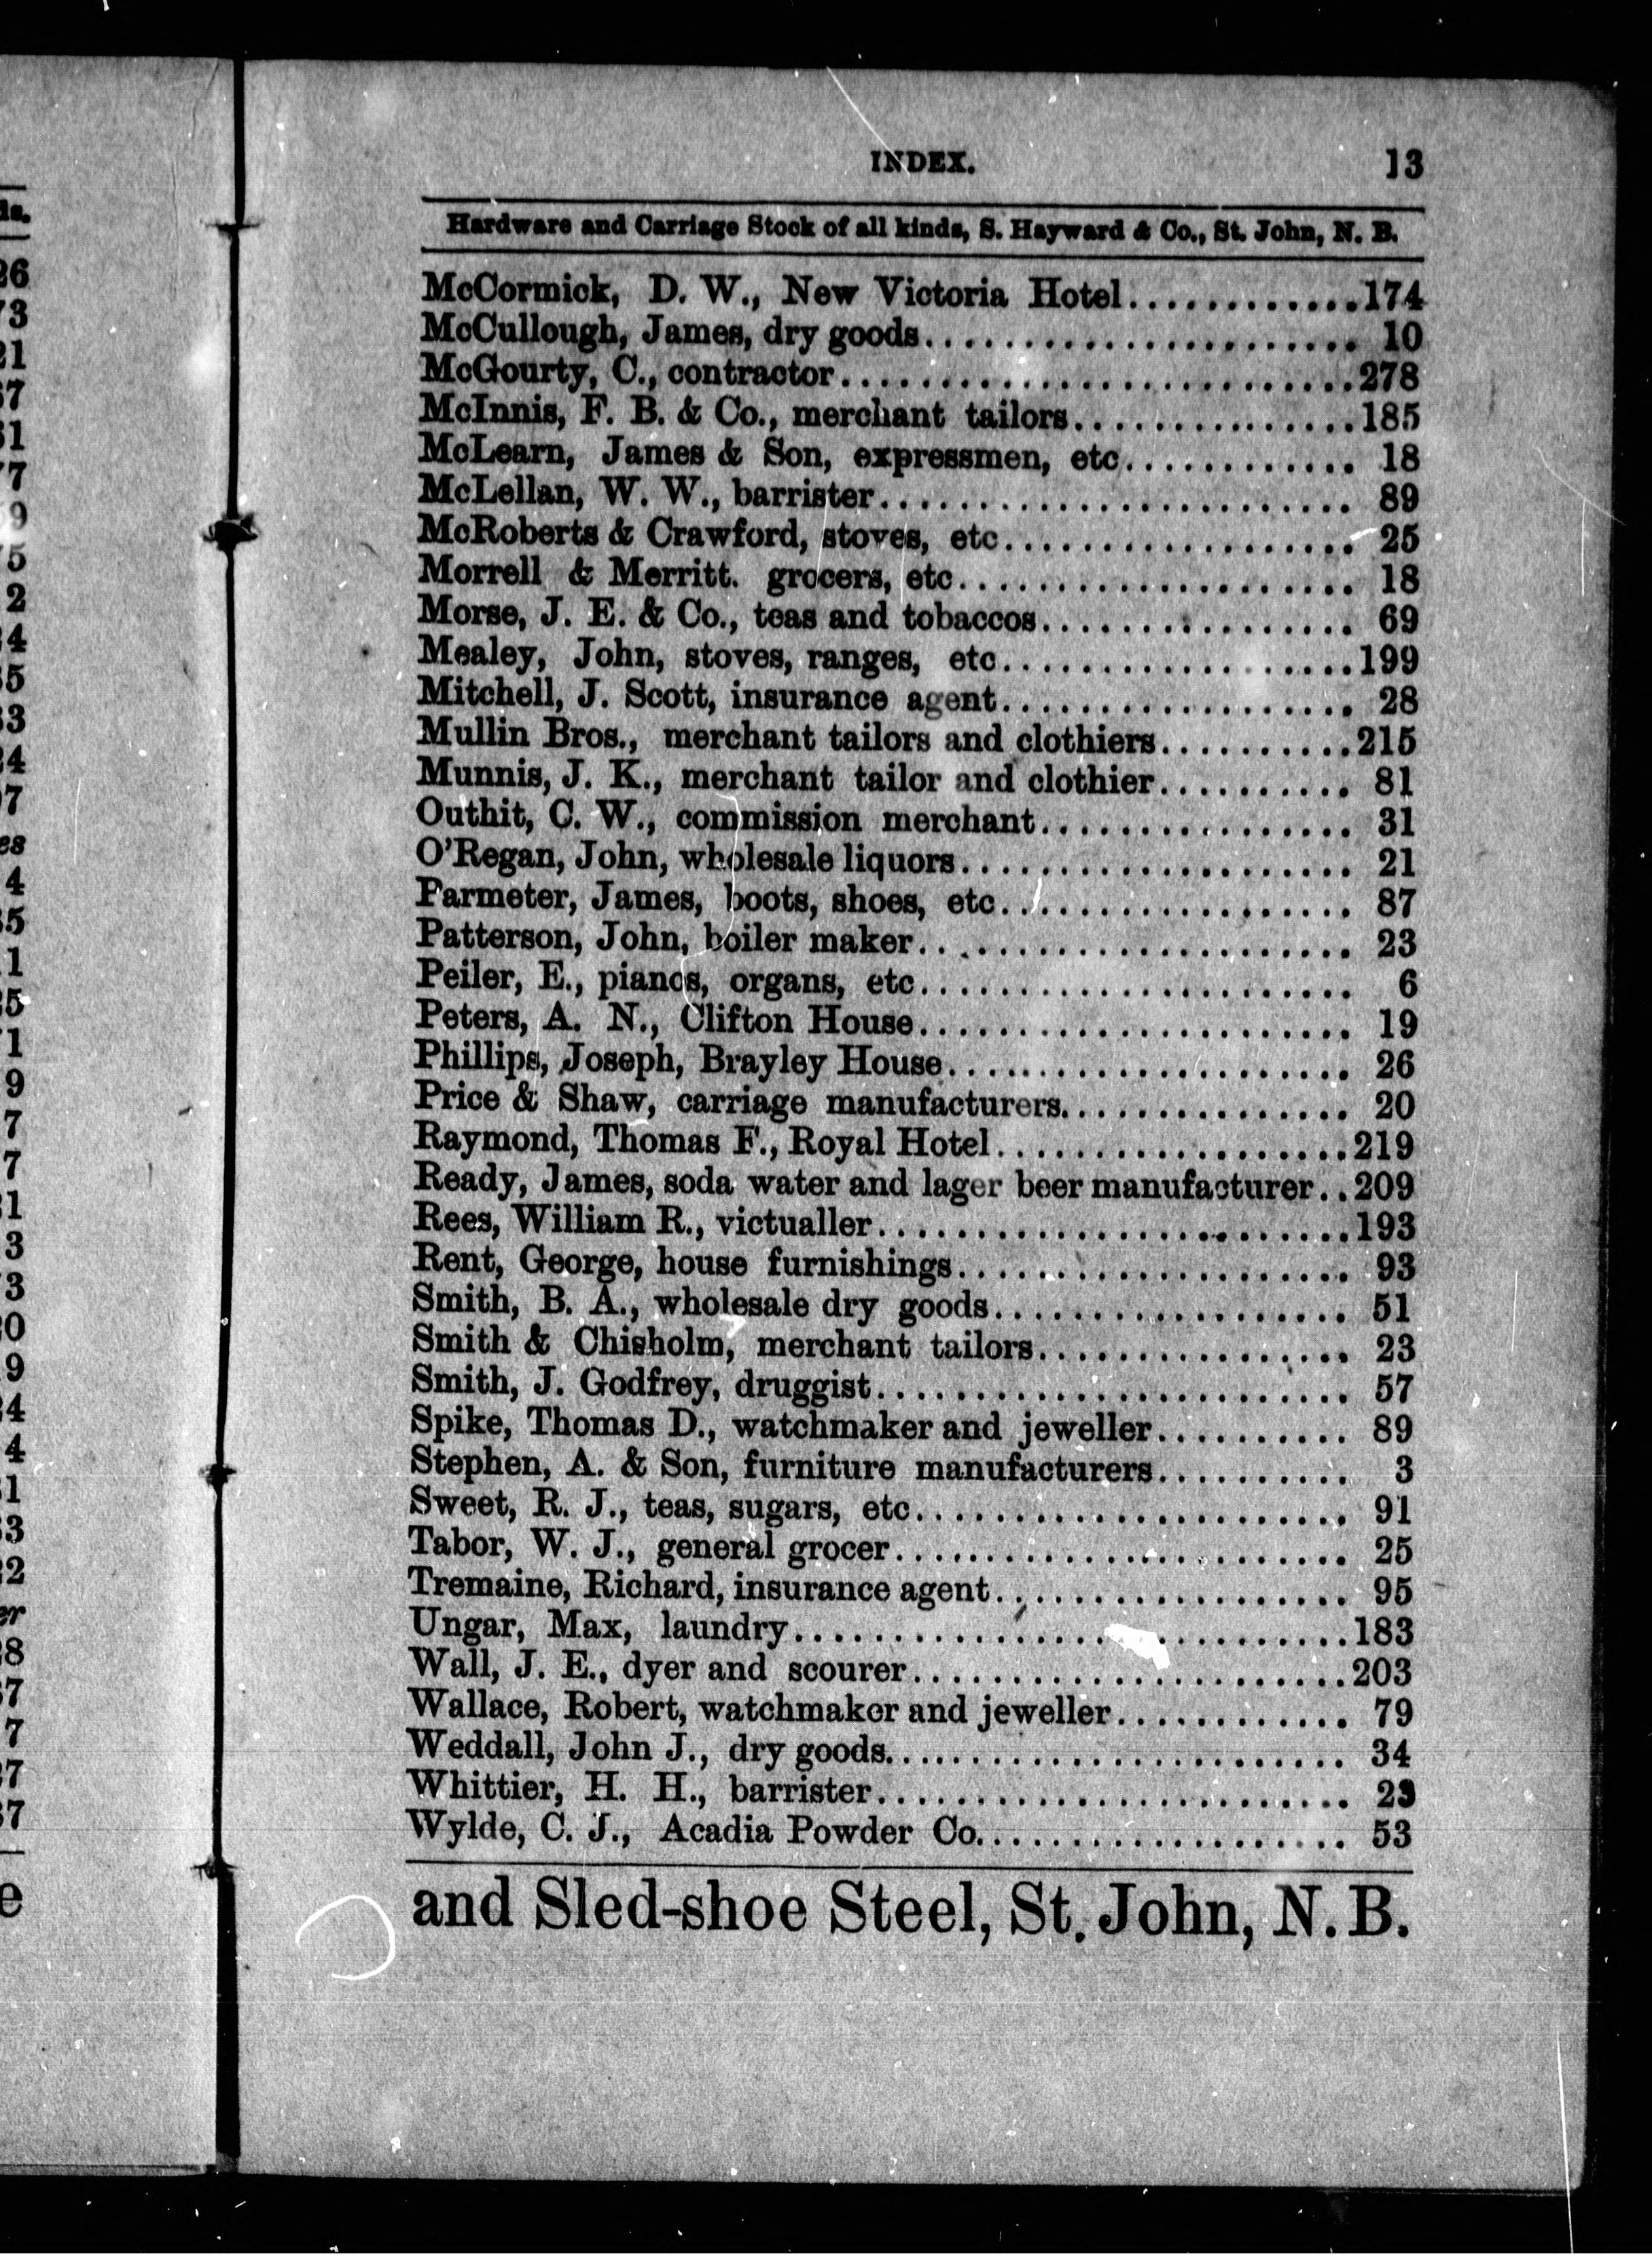 INDEX. 13
Hardware and Carriage Stock of all kinds, S. Hayward & Co., St. John, N. B.
McCormick, D. W., New Victoria Hotel............174
McCullough, James, dry goods...................... 10
McGourty, C., contractor..........................278
McInnis, F. B. & Co., merchant tailors...............185
McLearn, James & Son, expressmen, etc............ 18
McLellan, W. W., barrister........................ 89
McRoberts & Crawford, stoves, etc.................. 25
Morrell & Merritt. grocers, etc.................... 18
Morse, J. E. & Co., teas and tobaccos................ 69
Mealey, John, stoves, ranges, etc..................199
Mitchell, J. Scott, insurance agent.................. 28
Mullin Bros., merchant tailors and clothiers..........215
Munnis, J. K., merchant tailor and clothier.......... 81
Outhit, C. W., commission merchant................ 31
O'Regan, John, wholesale liquors.................... 21
Parmeter, James, boots, shoes, etc.................. 87
Patterson, John, boiler maker...................... 23
Peiler, E., pianos, organs, etc...................... 6
Peters, A. N., Clifton House...................... 19
Phillips, Joseph, Brayley House.................... 26
Price & Shaw, carriage manufacturers............... 20
Raymond, Thomas F., Royal Hotel..................219
Ready, James, soda water and lager beer manufacturer..209
Rees, William R., victualler........................193
Rent, George, house furnishings.................... 93
Smith, B. A., wholesale dry goods.................. 51
Smith & Chisholm, merchant tailors................ 23
Smith, J. Godfrey, druggist........................ 57
Spike, Thomas D., watchmaker and jeweller.......... 89
Stephen, A. & Son, furniture manufacturers.......... 3
Sweet, R. J., teas, sugars, etc...................... 91
Tabor, W. J., general grocer....................... 25
Tremaine, Richard, insurance agent.................. 95
Ungar, Max, laundry............................183
Wall, J. E., dyer and scourer......................203
Wallace, Robert, watchmaker and jeweller............ 79
Weddall, John J., dry goods....................... 34
Whittier, H. H., barrister........................ 23
Wylde, C. J., Acadia Powder Co................... 53
and Sled-shoe Steel, St. John, N. B.